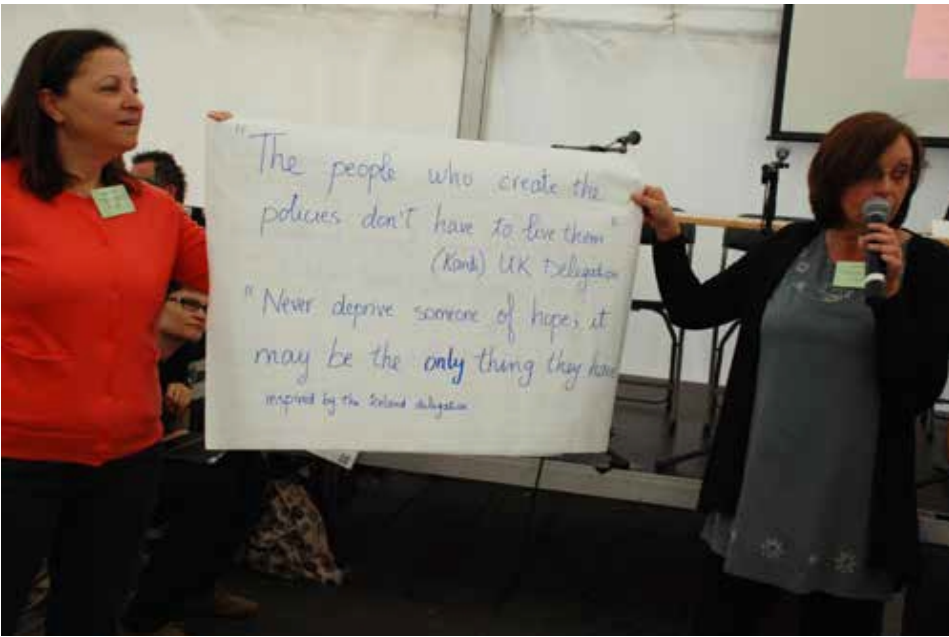 "The people who create the
policies don't have to live them"
UK Delegation
"Never deprive someone of hope, it
may be the only thing they have
inspired by the Ireland delegation